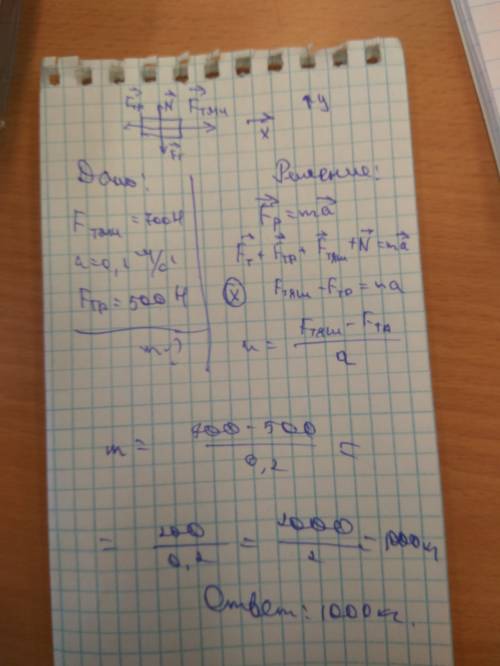 F⃗тр N⃗ F⃗тяж
F⃗т x⃗ ↑y
Дано:
Fтяж = 700Н
a = 0,2 м/с²
Fтр = 500 Н
m-?
Решение:
F⃗р = ma⃗
F⃗т + F⃗тр + F⃗тяж + N⃗ = ma⃗
(x) Fтяж - Fтр = ma
m = (Fтяж - Fтр)/a
m = (700 - 500)/0,2 =
= 200/0,2 = 2000/2 = 1000кг
Ответ: 1000кг.